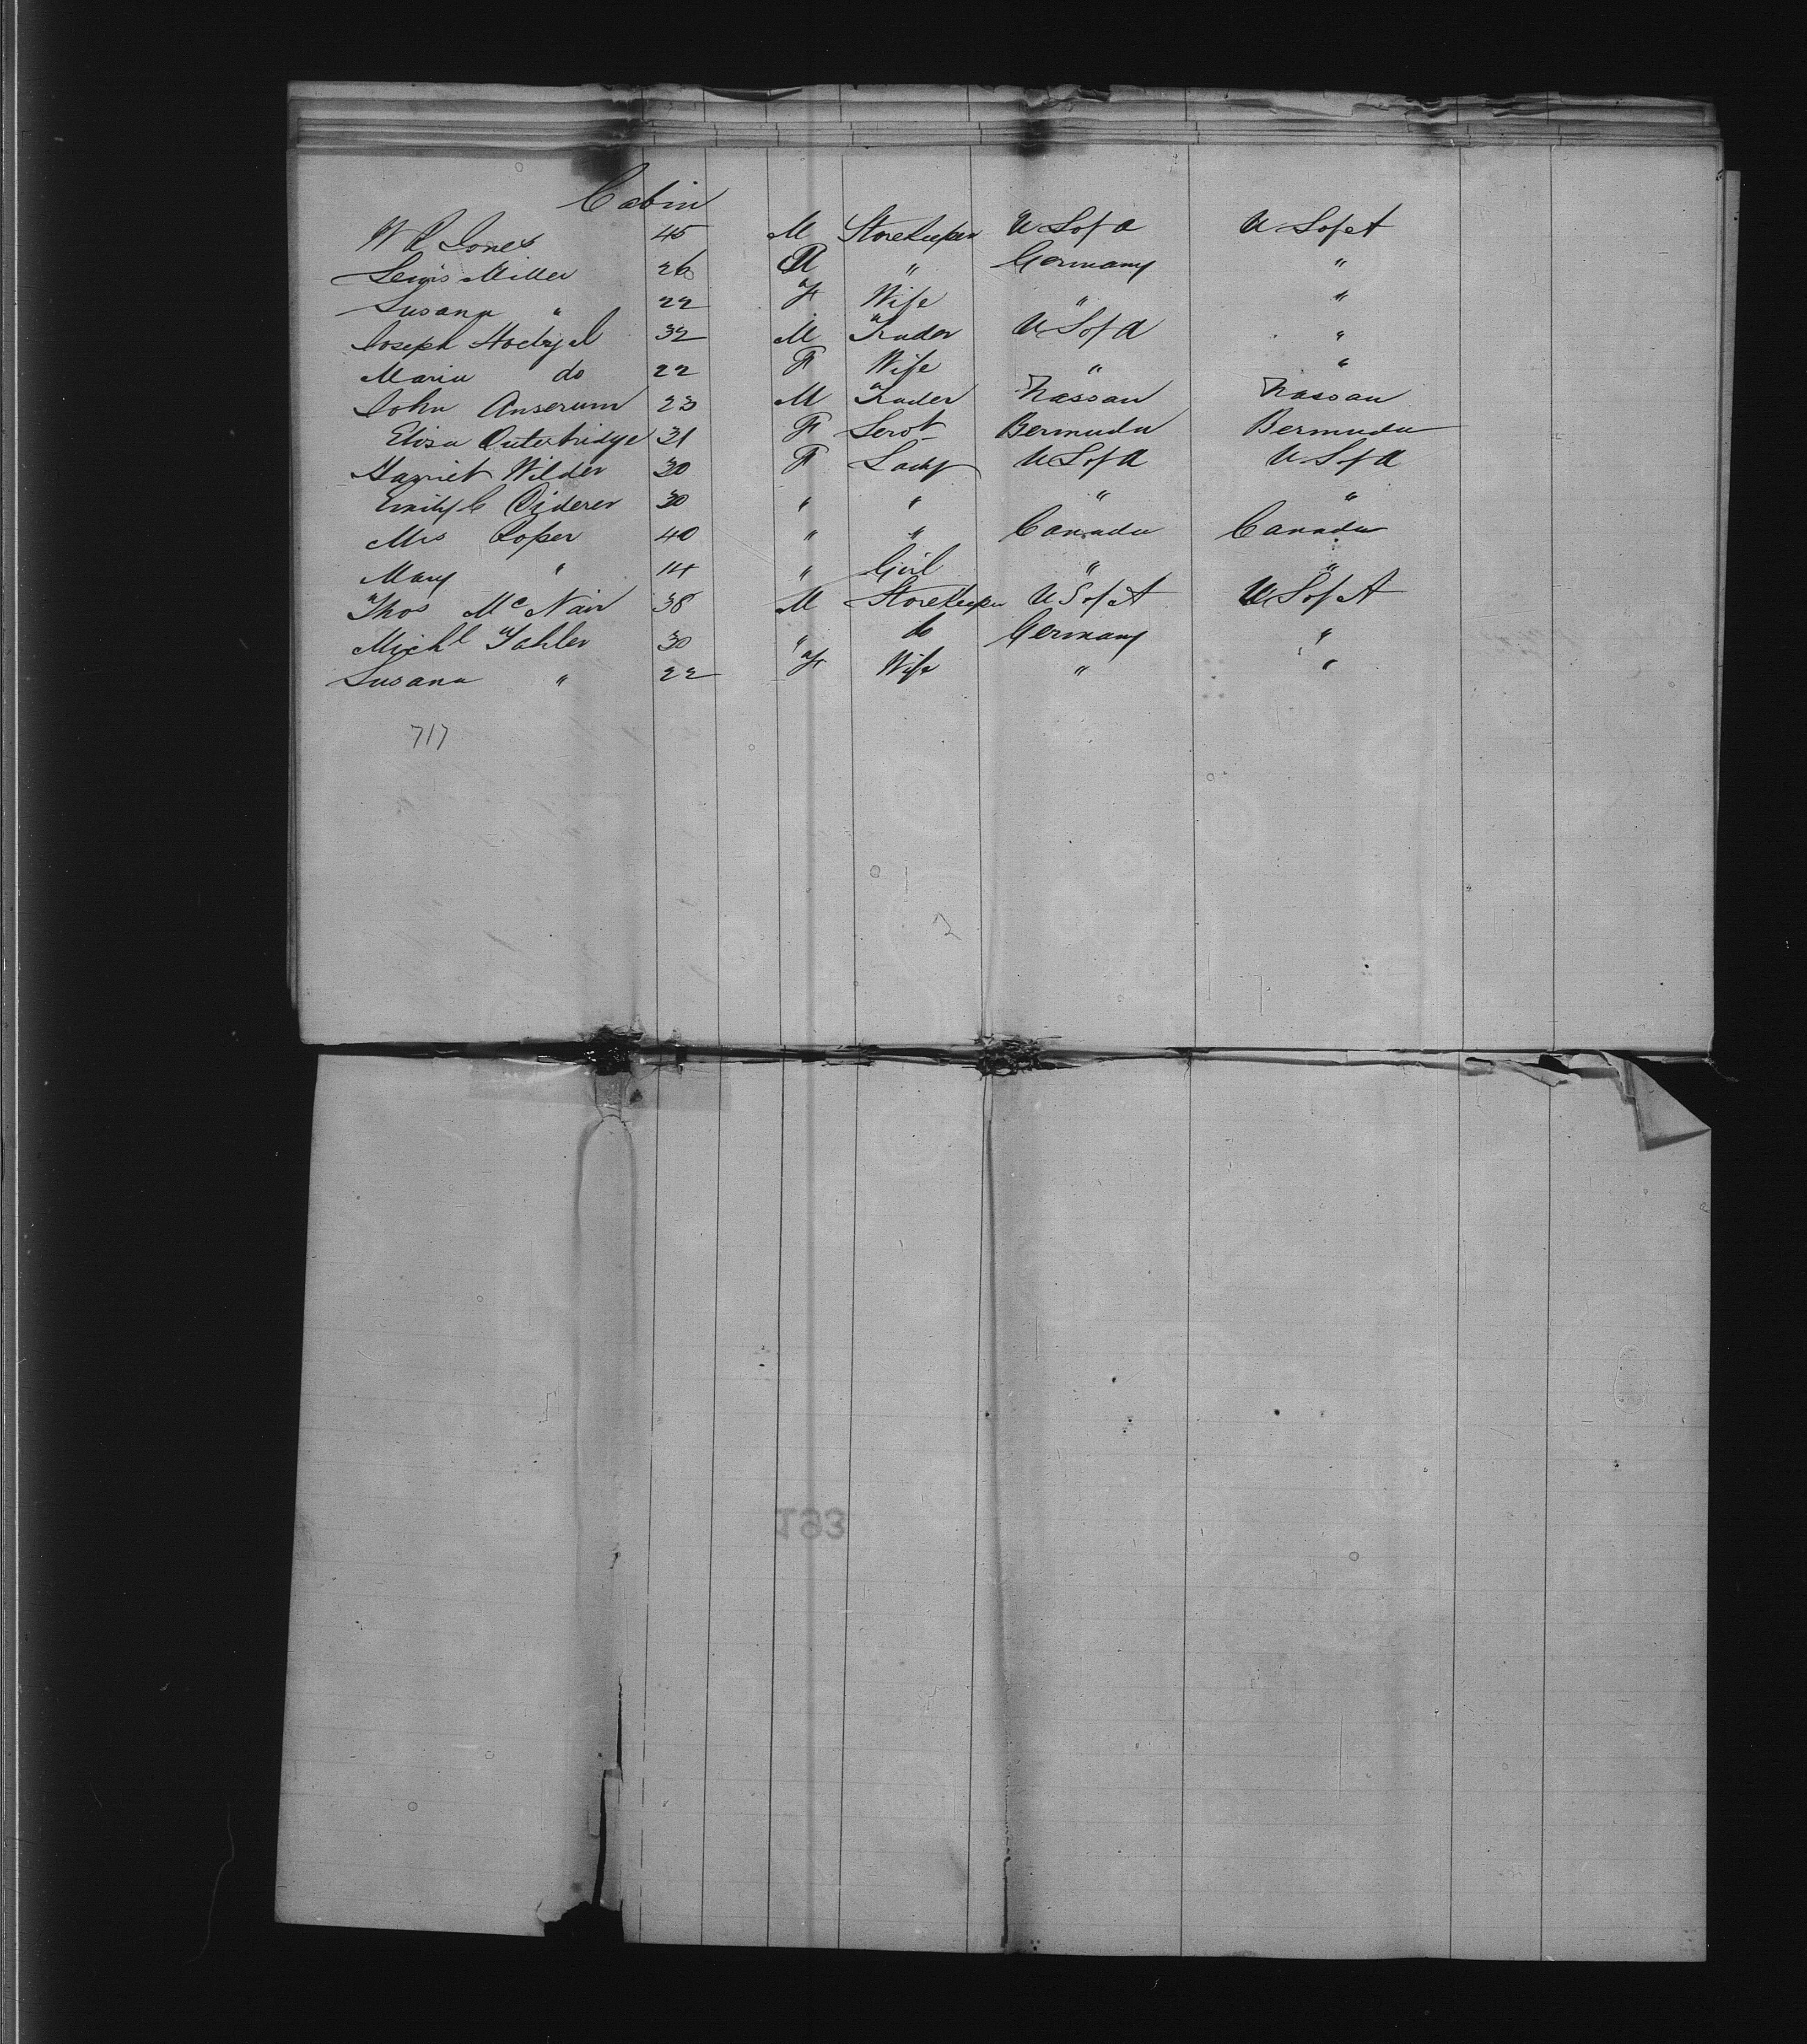 Cabin
W R Jones 45 M Storekeeper U S of A U S of A
Lewis Miller 26 M " Germany "
Susana " 22 F Wife " "
Joseph 32 M Trader U S of A "
Maria do 22 F Wife " "
John Anserum 23 M Trader Nassau Nassau
Eliza Outerbridge 31 F Servt Bermuda Bermuda
Harriet Wilder 30 F Lady U S of A U S of A
Emily C 30 " " " "
Mrs Roper 40 " " Canada Canada
Mary " 14 " Girl " "
Thos McNair 38 M Storekeeper U S of A U S of A
Michl Fahler 30 " do Germany "
Susana " 22 F Wife " "
717
193